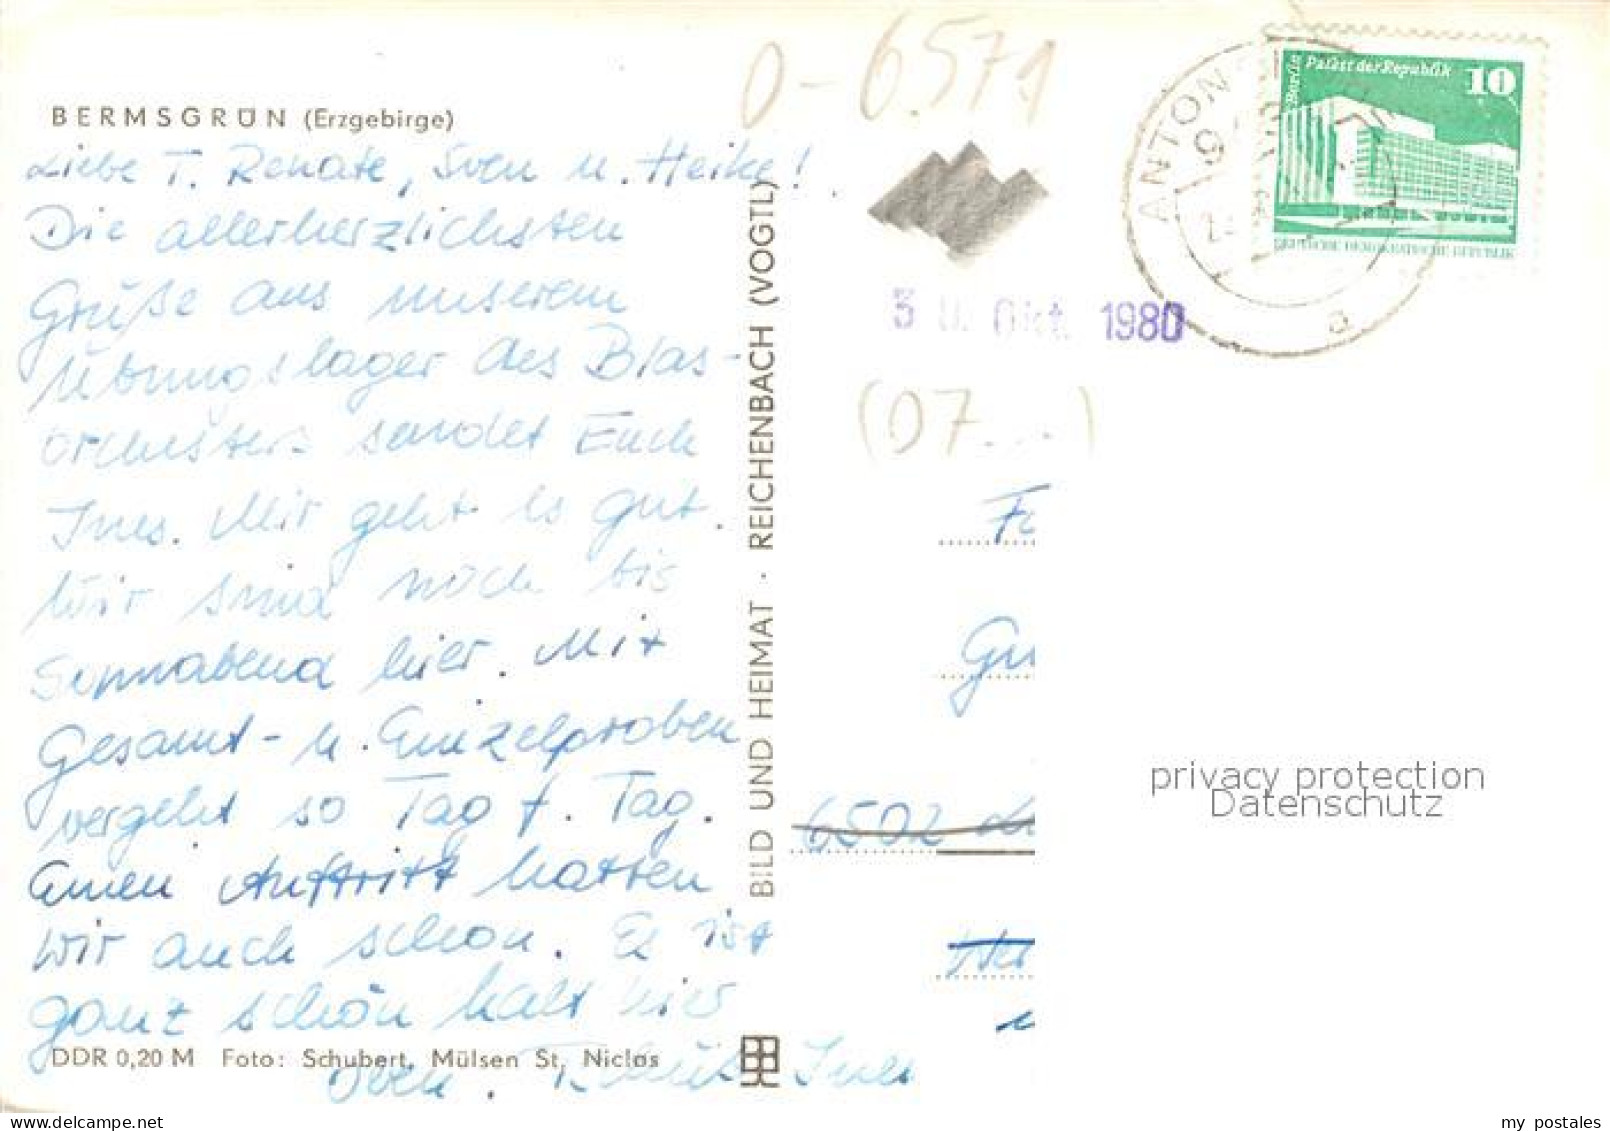 BERMSGRÜN (Erzgebirge)
Liebe T. Renate, Sven u. Heike!
Die allerherzlichsten
Grüße aus unserem
Übungslager des Blas-
orchesters sendet Euch
Ines. Mir geht es gut.
Wir sind noch bis
Sonnabend hier. Mit
Gesamt- u. Einzelproben
vergeht so Tag f. Tag.
Einen Auftritt hatten
wir auch schon. Es ist
ganz schön kalt hier
oben. Tschüß Ines
DDR 0,20 M Foto: Schubert, Mülsen St. Niclas
BILD UND HEIMAT · REICHENBACH (VOGTL)
0-6.571
ANTON
a
Berlin Palast der Republik 10
3 Okt. 1980
(07...)
Fa
Gu
6502
privacy protection
Datenschutz
my postales